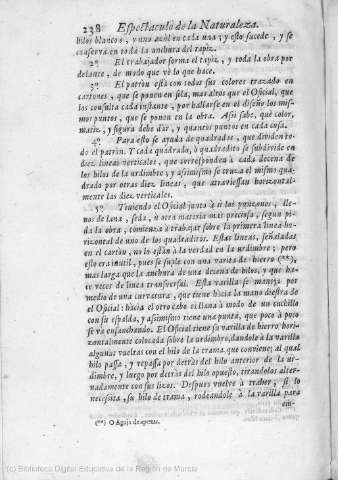 238 Espectaculo de la Naturaleza.
hilos blancos, y uno azul en cada una; y esto sucede, y se
conserva en toda la anchura del tapiz.
2.º El trabajador forma el tapiz, y toda la obra por
delante, de modo que vè lo que hace.
3.º El patròn està con todos sus colores trazado en
cartones, que se ponen en sila, mas altos que el Oficial, que
los consulta cada instante, por hallarse en el diseño los mis-
mos puntos, que se ponen en la obra. Assi sabe, què color,
matiz, y figura debe dàr, y quantos puntos en cada cosa.
4.º Para esto se ayuda de quadrados, que dividen to-
do el patròn. Y cada quadrado, ò quadrito se subdivide en
diez lineas verticales, que corresponden à cada decena de
los hilos de la urdimbre; y assimismo se cruza el mismo qua-
drado por otras diez lineas, que atraviessan horizontal-
mente las diez verticales.
5.º Teniendo el Oficial junto à sì los punzones, lle-
nos de lana, seda, ù otra materia mas preciosa, segun pi-
da la obra, comienza à trabajar sobre la primera linea ho-
rizontal de uno de los quadritos. Estas lineas, señaladas
en el cartòn, no lo estàn à la verdad en la urdimbre; pero
esto era inutil, pues se suple con una varita de hierro (**),
mas larga que la anchura de una decena de hilos, y que ha-
ce veces de linea transversal. Esta varilla se maneja por
medio de una curvatura, que tiene hàcia la mano diestra de
el Oficial: hàcia el otro cabo es llana à modo de un cuchillo
con su espalda, y assimismo tiene una punta, que poco à poco
se và ensanchando. El Oficial tiene su varilla de hierro hori-
zontalmente colocada sobre la urdimbre, dandole à la varilla
algunas vueltas con el hilo de la trama que conviene; al qual
hilo passa, y repassa por detràs del hilo anterior de la ur-
dimbre, y luego por detràs del hilo opuesto, tirandolos alter-
nadamente con sus lizos. Despues vuelve à traher, si lo
necessita, su hilo de trama, rodeandole à la varilla para
em-
(**) O Aguja de apretar.
(c) Biblioteca Digital Educativa de la Región de Murcia